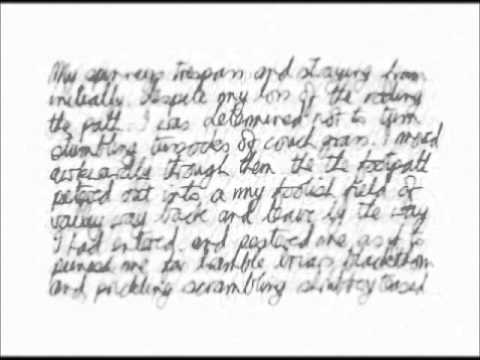 My trespass and straying from
initially. Despite my loss of the
the path. I was determined not to turn
stumbling tussocks of couch grass. I moved
awkwardly through them the the footpath
petered out into a my foolish field of
way back and leave by the way
I had entered and pestered me as if to
punish me for bramble briars blackthorn
and prickling scrambling